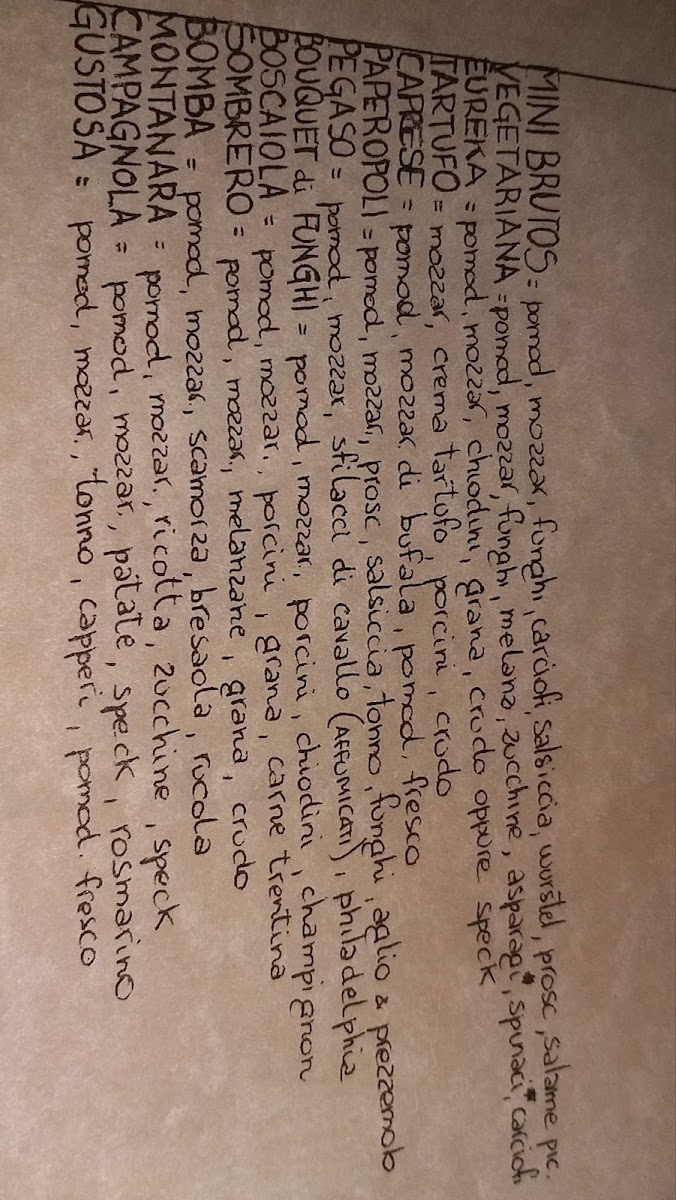 MINI BRUTOS = pomod, mozzar, funghi, carciofi, salsiccia, wurstel, prosc, salame pic.
VEGETARIANA = pomod, mozzar, funghi, melanz, zucchine, asparagi*, spinaci*, carciofi
EUREKA = pomod, mozzar, chiodini, grana, crudo oppure speck
TARTUFO = mozzar, crema tartufo, porcini, crudo
CAPRESE = pomod, mozzar di bufala, pomod. fresco
PAPEROPOLI = pomod, mozzar, prosc, salsiccia, tonno, funghi, aglio & prezzemolo
PEGASO = pomod, mozzar, sfilacci di cavallo (AFFUMICATI), philadelphia
BOUQUET di FUNGHI = pomod, mozzar, porcini, chiodini, champignon
BOSCAIOLA = pomod, mozzar., porcini, grana, carne trentina
SOMBRERO = pomod, mozzar., melanzane, grana, crudo
BOMBA = pomod, mozzar, scamorza, bresaola, rucola
MONTANARA = pomod, mozzar., ricotta, zucchine, speck
CAMPAGNOLA = pomod, mozzar., patate, speck, rosmarino
GUSTOSA = pomod, mozzar., tonno, capperi, pomod. fresco